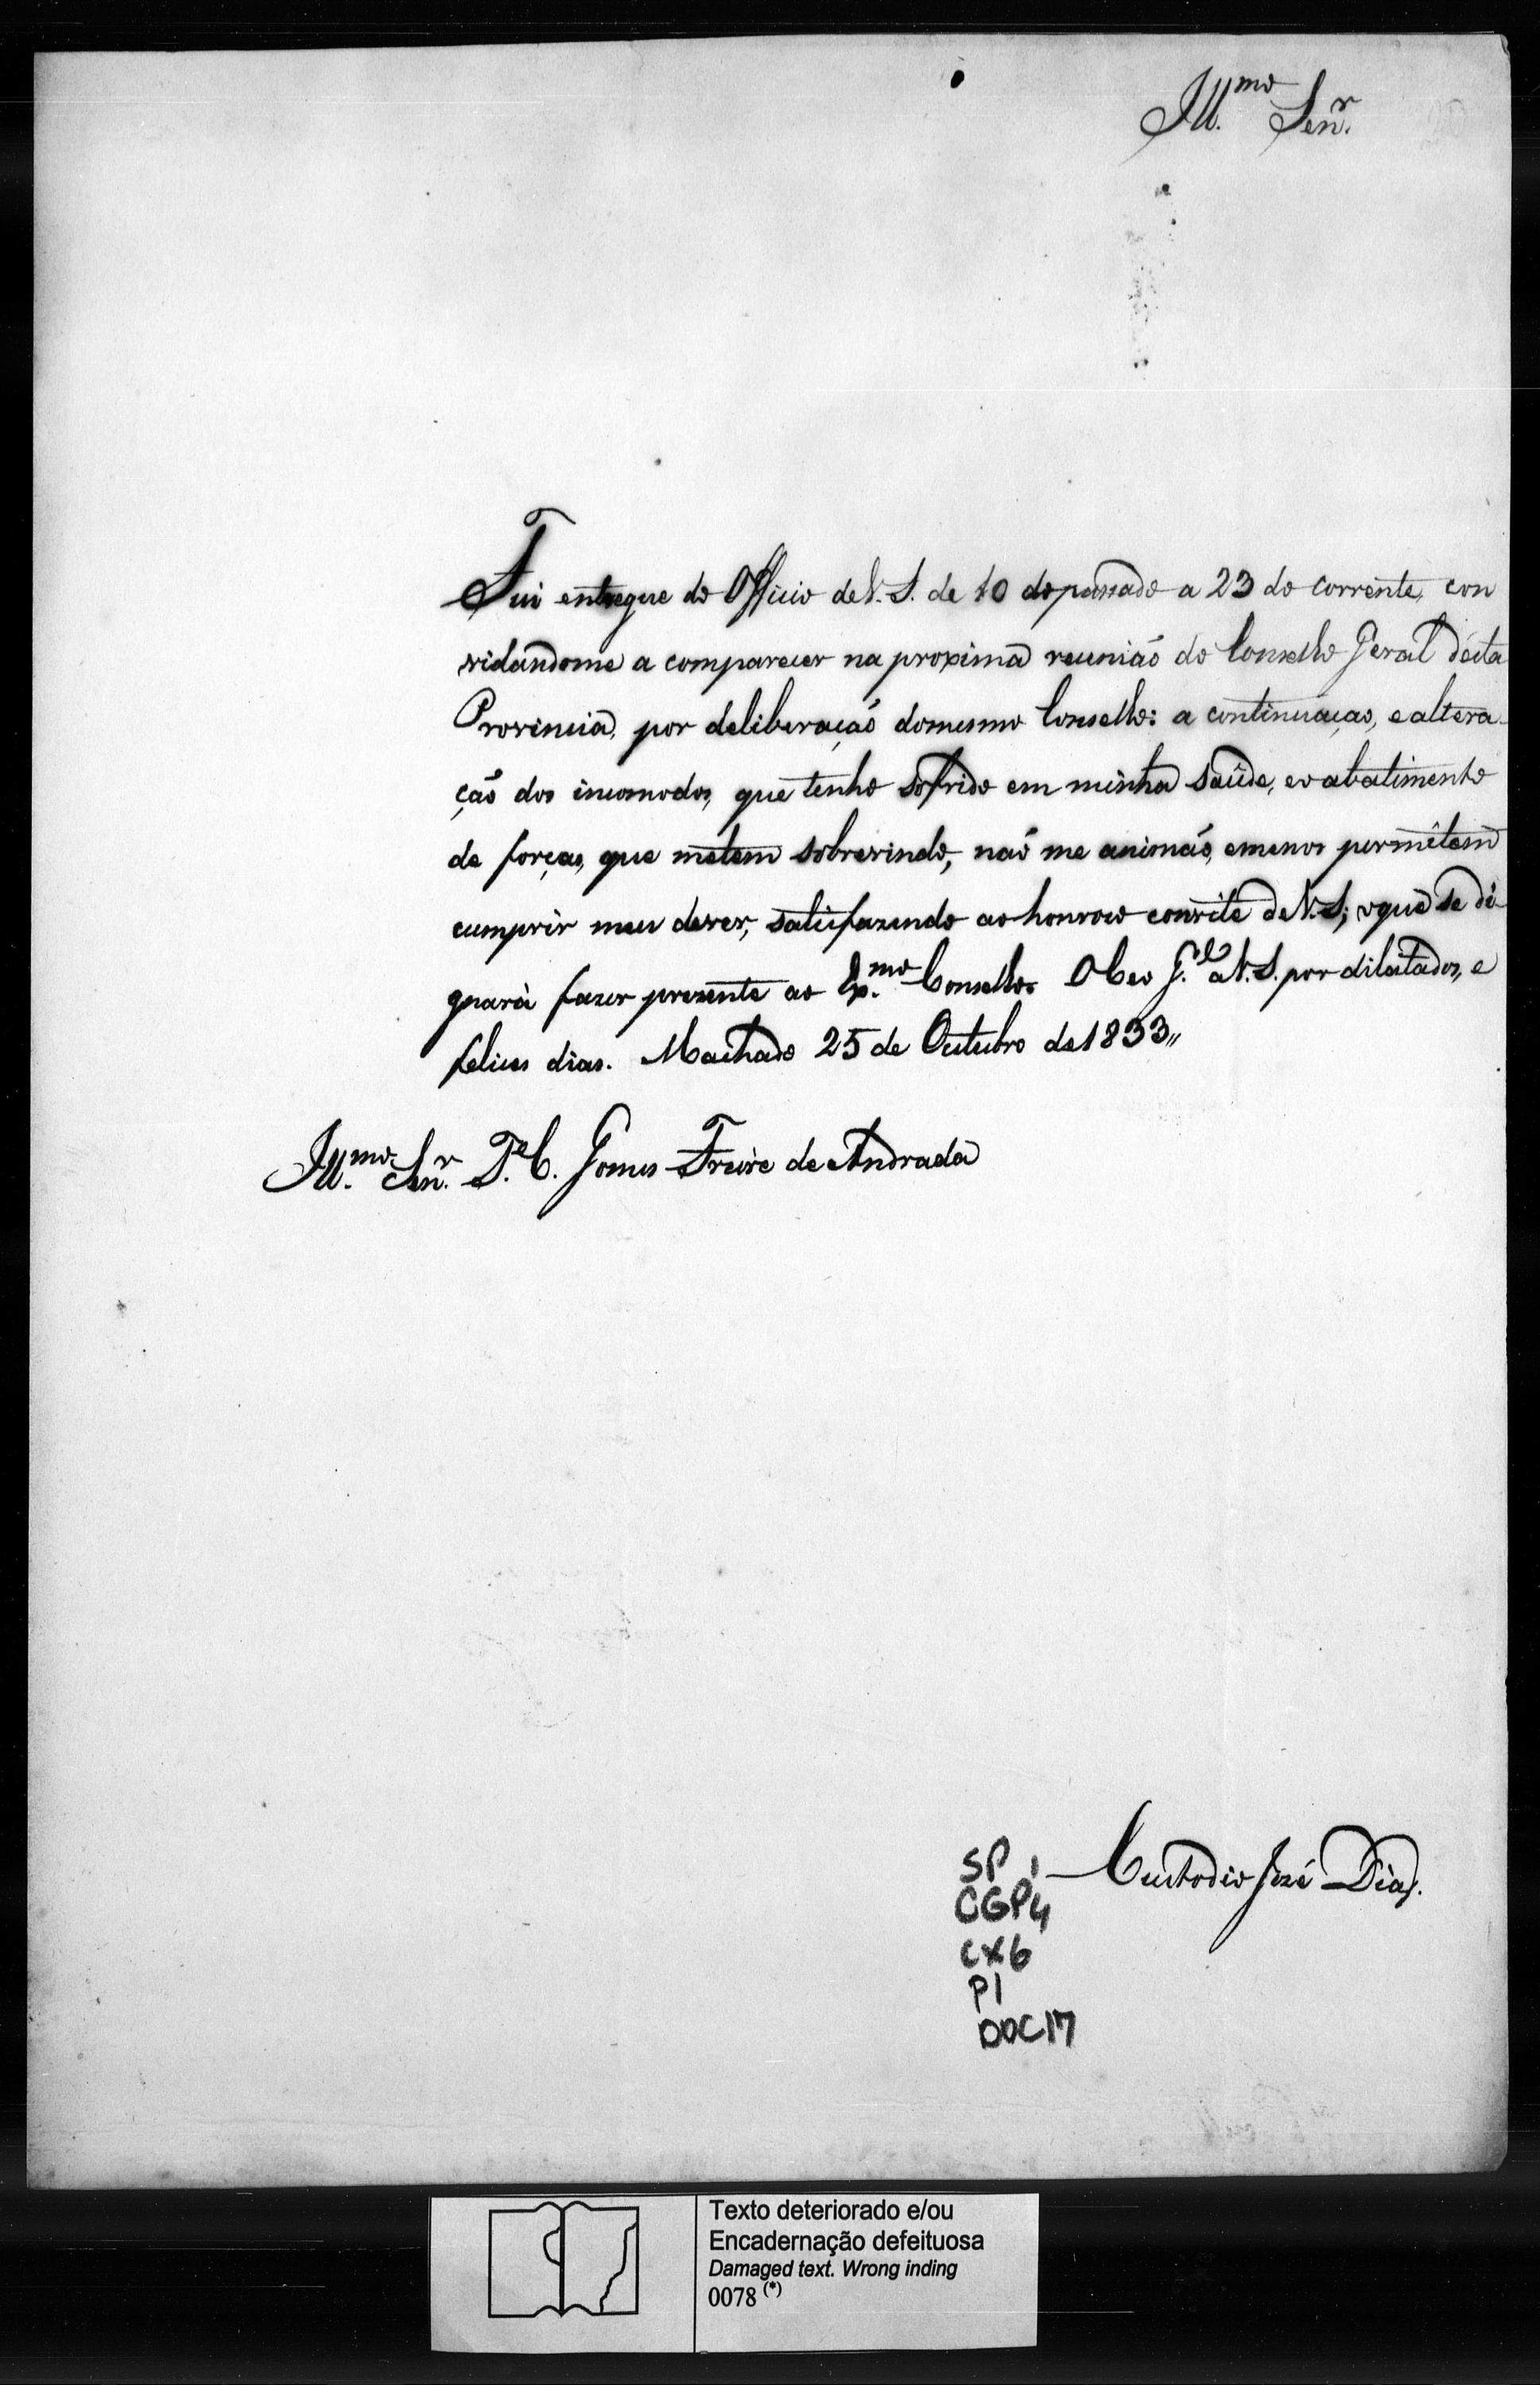 Ill.mo Senr.
Fui entregue do Officio de V. S. de 10 do passado a 23 do corrente, con
vidandome a comparecer na proxima reunião do Conselho Geral désta
Provincia, por deliberação do mesmo Conselho: a continuaçao, e altera-
ção dos incomodos, que tenho sofrido em minha saúde, e o abatimento
de forças, que me tem sobrevindo, naõ me animaõ, e menos permitem
cumprir meu dever, satisfazendo ao honroso convite de V. S.; o que se di-
gnará fazer presente ao Ex.mo Conselho. O Ceo G.de a V. S. por dilatados, e
felices dias. Machado 25 de Outubro de 1833,,
Ill.mo Senr. T.e C. Gomes Freire de Andrada
Custodio José Dias.
SP 1
CGP4
CX6
P1
DOC17
Texto deteriorado e/ou
Encadernação defeituosa
Damaged text. Wrong inding
0078 (*)